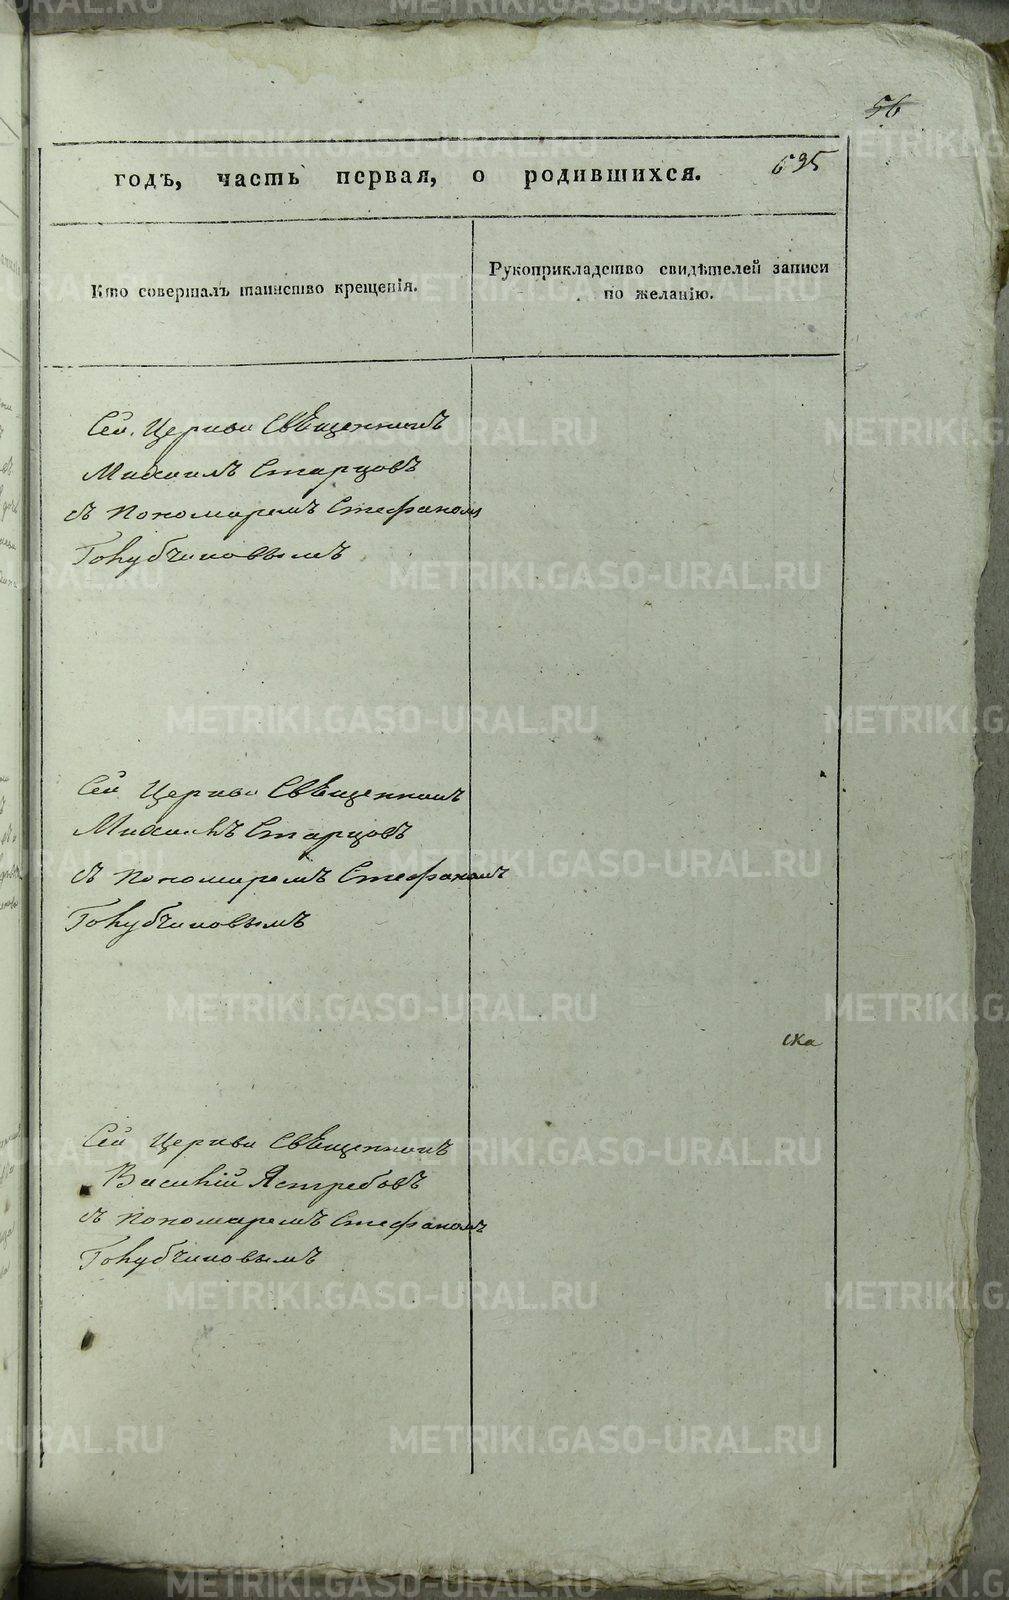 56
годъ, часть первая, о родившихся. 695
Кто совершалъ таинство крещенія.
Рукоприкладство свидѣтелей записи
по желанію.
Сей Церкви Священникъ
Михаилъ Старцовъ
съ пономаремъ Стефаномъ
Голубчиковымъ
Сей Церкви Священникъ
Михаилъ Старцовъ
съ пономаремъ Стефаномъ
Голубчиковымъ
ска
Сей Церкви Священникъ
Василій Ястребовъ
съ пономаремъ Стефаномъ
Голубчиковымъ
METRIKI.GASO-URAL.RU